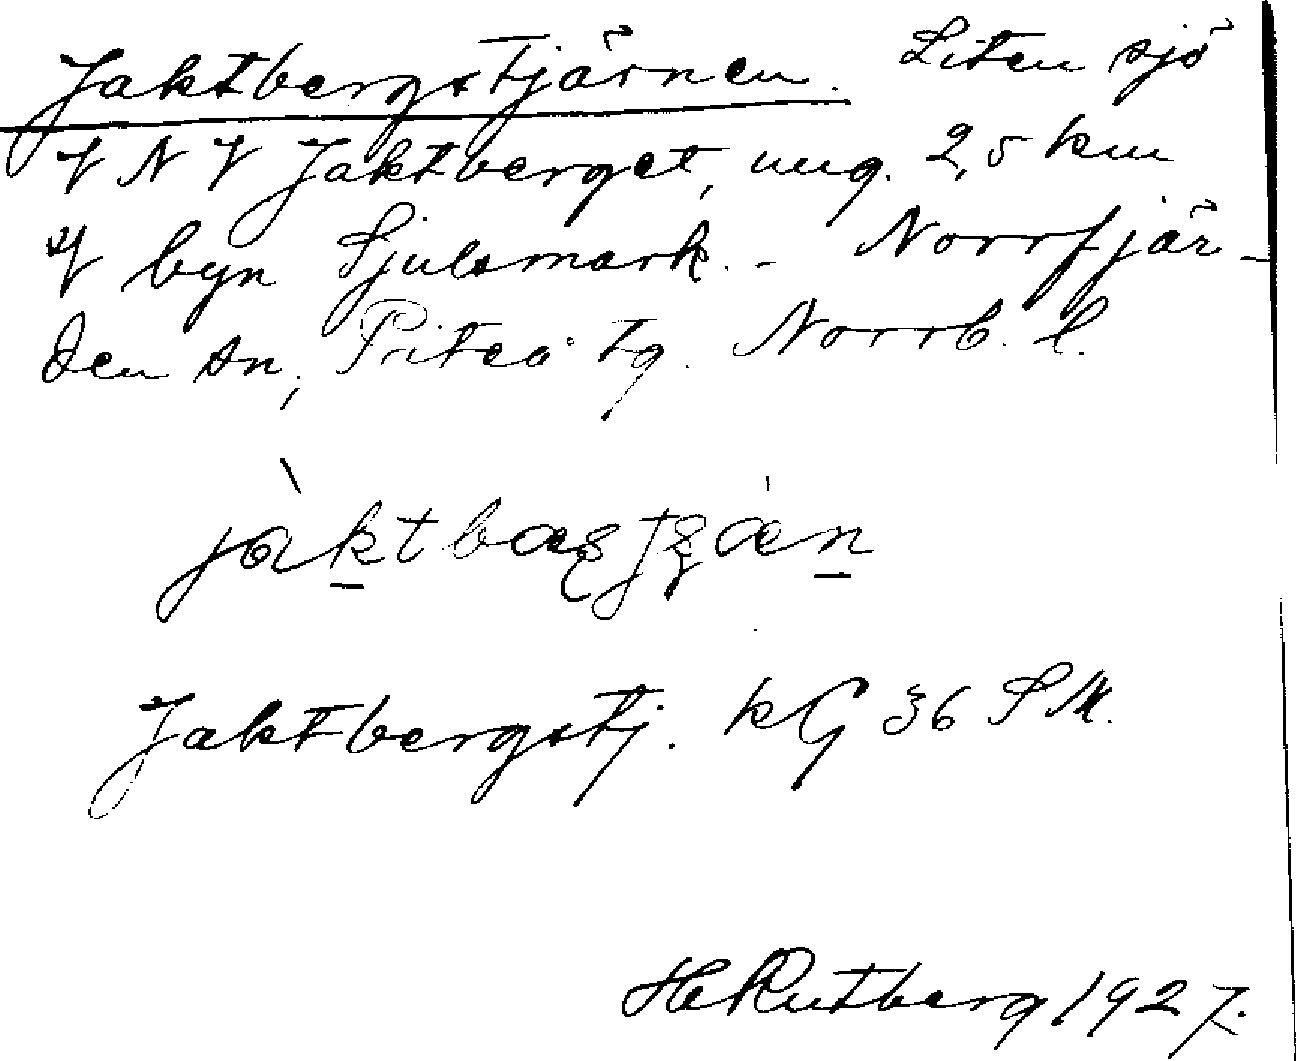 Jaktbergstjärnen. Liten sjö
V N V Jaktberget, ung. 2,5 km
V byn Sjulsmark. - Norrfjär-
den sn, Piteå tg. Norrb. l.
Jaktbergstj. kG 36 SM.
H Rutberg 1927.